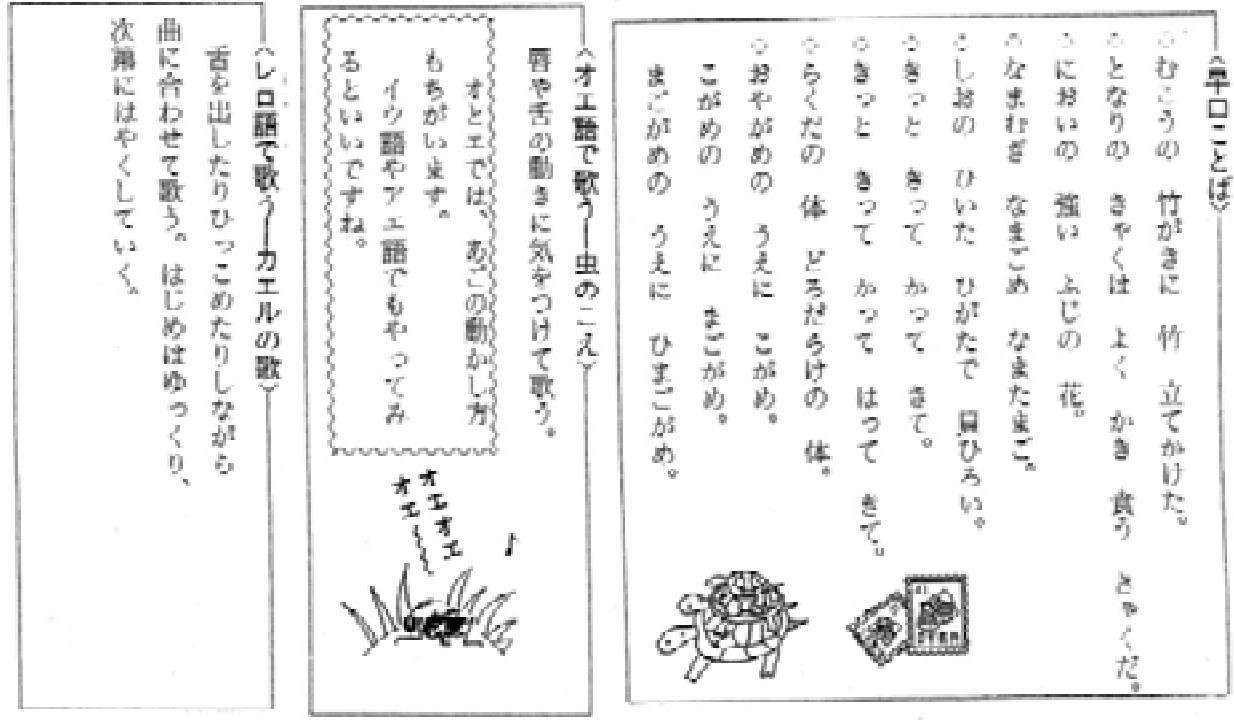 〈早口ことば〉
○むこうの 竹がきに 竹 立てかけた。
○となりの きゃくは よく かき 食う きゃくだ。
○においの 強い ふじの 花。
○なまむぎ なまごめ なまたまご。
○しおの ひいた ひがたで 貝ひろい。
○きっと きって かって きて。
○きっと きって かって はって きて。
○らくだの 体 どろだらけの 体。
○おやがめの うえに こがめ。
こがめの うえに まごがめ。
まごがめの うえに ひまごがめ。
〈オエ語で歌う―虫のこえ〉
唇や舌の動きに気をつけて歌う。
オとエでは、あごの動かし方
もちがいます。
イウ語やアエ語でもやってみ
るといいですね。
オエオエ
オエ~~~
〈レロ語で歌う―カエルの歌〉
舌を出したりひっこめたりしながら
曲に合わせて歌う。はじめはゆっくり、
次第にはやくしていく。